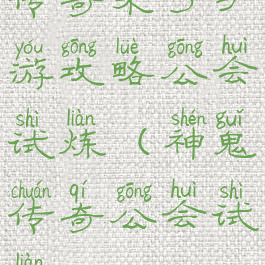 yóu gōng lüè gōng huì
游攻略公会
shì liàn shén guǐ
试炼（神鬼
chuán qí gōng huì shì
传奇公会试
liàn